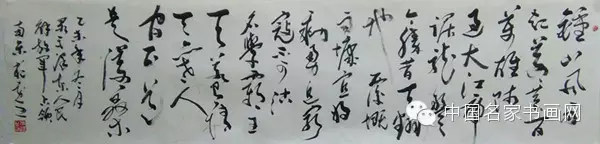 鍾山风雨
起苍黄百
万雄师
过大江虎
踞龙盘
今胜昔天翻
地覆慨
而慷宜将
剩勇追穷
寇不可沽
名学霸王
天若有情
天亦老人
间正道
是沧桑
乙未年冬月
录毛泽东人民
解放军占领
南京
中国名家书画网